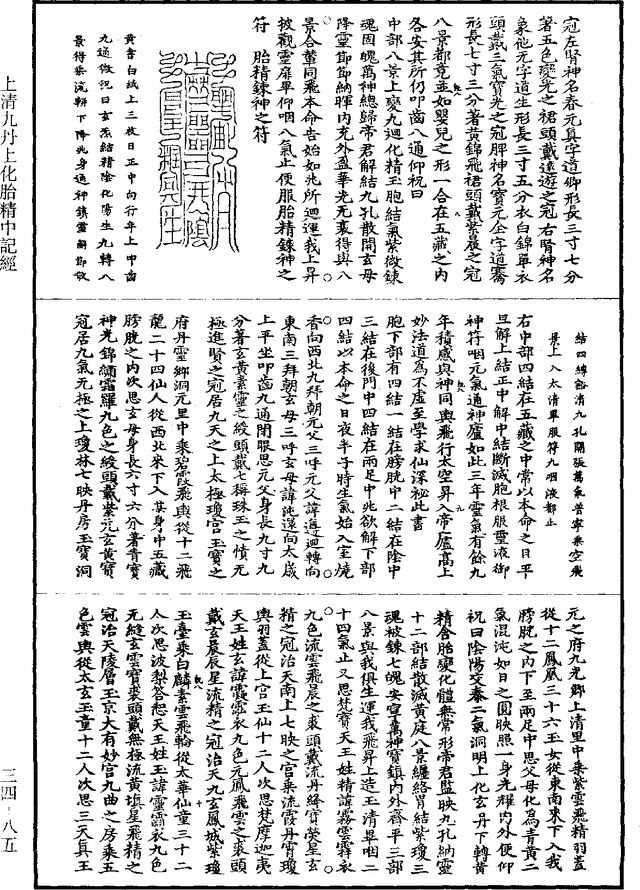 冠左腎神名春元真字道卿形長三寸七分
著五色變光之裙頭戴遠遊之冠右腎神名
象他无字道生形長三寸五分衣白錦單衣
頭戴三氣寶光之冠脾神名寶元全字道騫
形長七寸三分著黃錦飛裙頭戴紫晨之冠
八景都竟並如嬰兒之形一合在五藏之内
各安其所仍叩齒八通仰祝曰
中部八景上變九迴化精玉胞結氣紫微鍊
魂固魄萬神總歸帝君解結九孔散開玄母
降靈節節納暉内充外盈華光无衰得與八
景合輦同飛本命告始如兆所迴運我上昇
披觀靈扉畢仰咽八氣止便服胎精鍊神之
符　胎精鍊神之符
黃書白紙上三枚日正中向行年上叩齒
九通微祝曰玄炁結精陰化陽生九轉八
景得乘流軿下降兆身通神鎮靈解節散
結四縛豁清九孔開張萬炁番寧乘空飛
景上入太清畢服符九咽液都止
右中部四結在五藏之中常以本命之日平
旦解上結正中解中結斷滅胞根服靈液御
神符咽元氣通神廬如此三年靈氣有餘九
年積感與神同輿飛行太空昇入帝廬高上
妙法道為不虛至學求仙深祕此書
胞下部有四結一結在膀胱中二結在陰中
三結在後門中四結在兩足中兆欲解下部
四結以本命之日夜半子時生氣始入室燒
香向西北九拜朝元父三呼元父諱道迴轉向
東南三拜朝玄母三呼玄母諱沌還向太歲
上平坐叩齒九通閉眼思元父身長九寸九
分著玄黃素靈之綬頭戴七稱珠玉之幘无
極進賢之冠居九天之上太極瓊宮玉寶之
府丹靈鄉洞元里中乘碧霞飛輿從十二飛
龍二十四仙人從西北來下入某身中五藏
膀胱之内次思玄母身長六寸六分著青寶
神光錦繡霜羅九色之綬頭戴紫元玄黃寶
冠居九氣无極之上瓊林七映丹房玉寶洞
元之府九光鄉上清里中乘紫雲飛精羽蓋
從十二鳳凰三十六玉女從東南來下入我
膀胱之内下至兩足中思父母化為青黃二
氣混沌如日之圓映照一身光耀内外便仰
祝曰陰陽交泰二氣洞明上化玄丹下轉黃
精含胎變化體無常形帝君監映九孔納靈
十二部結散滅黃庭八景纏絡胃結紫瓊三
魂被鍊七魄安寧萬神寶鎮内外齊平三部
八景與我俱生運我飛昇上造玉清畢咽二
十四氣止又思梵寶天王姓精諱霧雲霏衣
九色流雲飛晨之裘頭戴流丹絳寶熒星玄
精之冠治天南上七映之宮乘流霞丹霄瓊
輿羽蓋從上宮玉仙十二人次思梵摩迦夷
天王姓玄諱霞霐衣九色元鳳飛雲之裘頭
戴玄晨辰星流精之冠治天九玄鳳城紫瓊
玉臺乘白麟素雲飛輪從太華仙童三十二
人次思波梨答惒天王姓玉諱靈霨衣九色
无縫玄雲寶裘頭戴無極流黃填星飛精之
冠治天陵層玉京大有妙宮九曲之房乘五
色雲輿從太玄玉童十二人次思三天真王
上清九丹上化胎精中記經
三四－八五